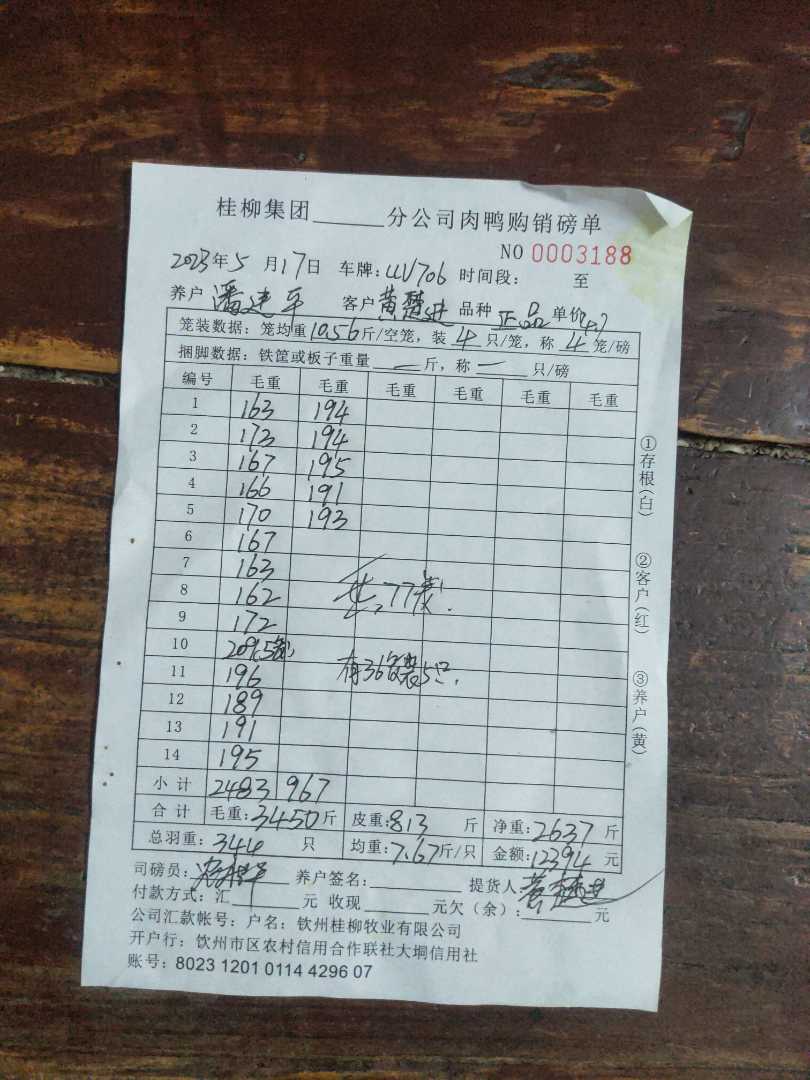 桂柳集团______分公司肉鸭购销磅单
NO 0003188
2023年5月17日 车牌:UV706 时间段: 至
养户 潘建平 客户 黄楚进 品种 正品 单价4.7
笼装数据:笼均重10.56斤/空笼,装4只/笼,称4笼/磅
捆脚数据:铁筐或板子重量 — 斤,称 — 只/磅
编号 毛重 毛重 毛重 毛重 毛重 毛重
1 163 194
2 173 194
3 167 195
4 166 191
5 170 193
6 167
7 163
8 162 共77笼
9 172
10 209(5笼)
11 196 有36笼装5只.
12 189
13 191
14 195
小计 2483 967
合计 毛重:3450斤 皮重:813 斤 净重:2637斤
总羽重:344 只 均重:7.67斤/只 金额:12394元
司磅员: 养户签名: 提货人:黄楚进
付款方式:汇______元 收现______元欠(余):______元
公司汇款帐号:户名:钦州桂柳牧业有限公司
开户行:钦州市区农村信用合作联社大垌信用社
账号:8023 1201 0114 4296 07
①存根(白) ②客户(红) ③养户(黄)